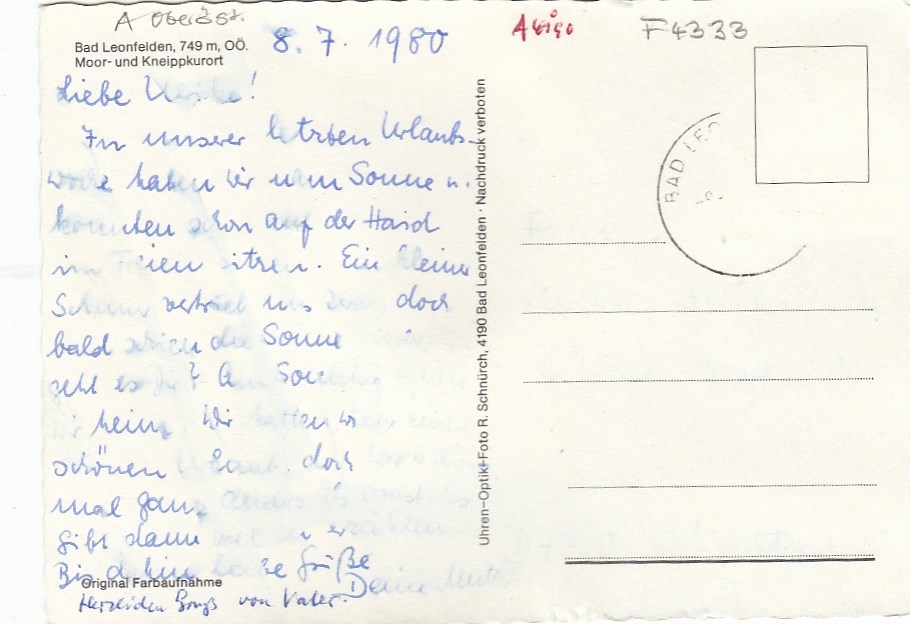 A Oberöst.
Bad Leonfelden, 749 m, OÖ.
Moor- und Kneippkurort
8. 7. 1980
Liebe Ulrike!
In unserer letzten Urlaubs-
woche haben wir nun Sonne u.
konnten schon auf der Haid
im Freien sitzen. Ein kleiner
Schauer vertrieb uns zwar, doch
bald schien die Sonne wieder.
geht es Dir? Am Sonntag fahren
wir heim. Wir hatten
schönen Urlaub, doch
mal ganz anders als sonst. Es
gibt dann viel zu erzählen
Bis dahin liebe Grüße
Deine Mutti
Original Farbaufnahme
Herzlichen Gruß von Vater.
Uhren-Optik-Foto R. Schnürch, 4190 Bad Leonfelden · Nachdruck verboten
F4333
BAD LEO